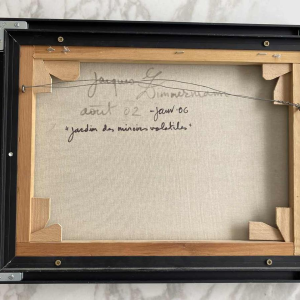 Jacques Zimmermann
août 02 - Janv-06
"jardin des miroirs volatiles"